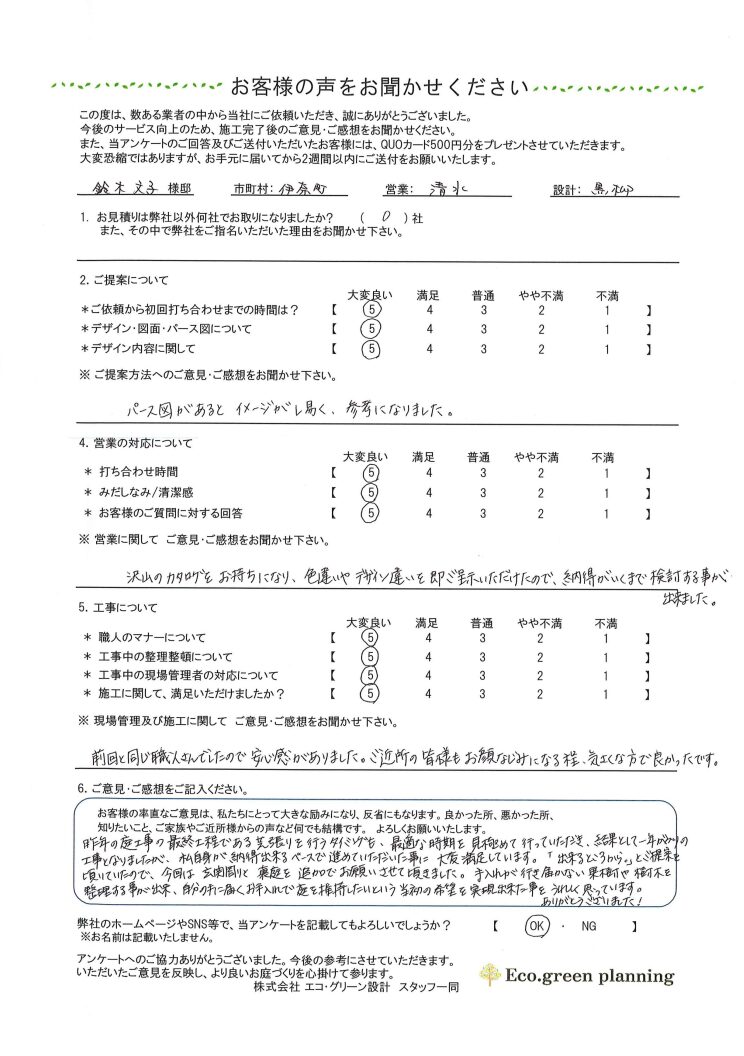 お客様の声をお聞かせください
この度は、数ある業者の中から当社にご依頼いただき、誠にありがとうございました。
今後のサービス向上のため、施工完了後のご意見・ご感想をお聞かせください。
また、当アンケートのご回答及びご送付いただいたお客様には、QUOカード500円分をプレゼントさせていただきます。
大変恐縮ではありますが、お手元に届いてから2週間以内にご送付をお願いいたします。
鈴木文子 様邸 市町村：伊奈町 営業： 清水 設計：黒柳
1. お見積りは弊社以外何社でお取りになりましたか？ （ 0 ）社
また、その中で弊社をご指名いただいた理由をお聞かせ下さい。
2. ご提案について
大変良い 満足 普通 やや不満 不満
＊ご依頼から初回打ち合わせまでの時間は？ 【 5 4 3 2 1 】
＊デザイン・図面・パース図について 【 5 4 3 2 1 】
＊デザイン内容に関して 【 5 4 3 2 1 】
※ ご提案方法へのご意見・ご感想をお聞かせ下さい。
パース図があると イメージがし易く、参考になりました。
4. 営業の対応について
大変良い 満足 普通 やや不満 不満
＊ 打ち合わせ時間 【 5 4 3 2 1 】
＊ みだしなみ/清潔感 【 5 4 3 2 1 】
＊ お客様のご質問に対する回答 【 5 4 3 2 1 】
※ 営業に関して ご意見・ご感想をお聞かせ下さい。
沢山のカタログをお持ちになり、色違いやデザイン違いを即ご呈示いただけたので、納得がいくまで検討する事が
出来ました。
5. 工事について
大変良い 満足 普通 やや不満 不満
＊ 職人のマナーについて 【 5 4 3 2 1 】
＊ 工事中の整理整頓について 【 5 4 3 2 1 】
＊ 工事中の現場管理者の対応について 【 5 4 3 2 1 】
＊ 施工に関して、満足いただけましたか？ 【 5 4 3 2 1 】
※ 現場管理及び施工に関して ご意見・ご感想をお聞かせ下さい。
前回と同じ職人さんでしたので安心感がありました。ご近所の皆様もお顔なじみになる程、気さくな方で良かったです。
6. ご意見・ご感想をご記入ください。
お客様の率直なご意見は、私たちにとって大きな励みになり、反省にもなります。良かった所、悪かった所、
知りたいこと、ご家族やご近所様からの声など何でも結構です。 よろしくお願いいたします。
昨年の庭工事の最終工程である芝張りを行うタイミングも、最適な時期を見極めて行っていただき、結果として一年がかりの
工事となりましたが、私自身が納得出来るペースで進めていただいた事に大変満足しています。「出来るところから。」とご提案を
頂いていたので、今回は玄関周りと裏庭を追加でお願いさせて頂きました。手入れが行き届かない果樹や樹木を
整理する事が出来、自分の手に届くお手入れで庭を維持したいという当初の希望を実現出来た事をうれしく思っています。
ありがとうございました！
弊社のホームページやSNS等で、当アンケートを記載してもよろしいでしょうか？ 【 OK ・ NG 】
※お名前は記載いたしません。
アンケートへのご協力ありがとうございました。今後の参考にさせていただきます。
いただいたご意見を反映し、より良いお庭づくりを心掛けて参ります。
株式会社 エコ・グリーン設計 スタッフ一同
Eco.green planning